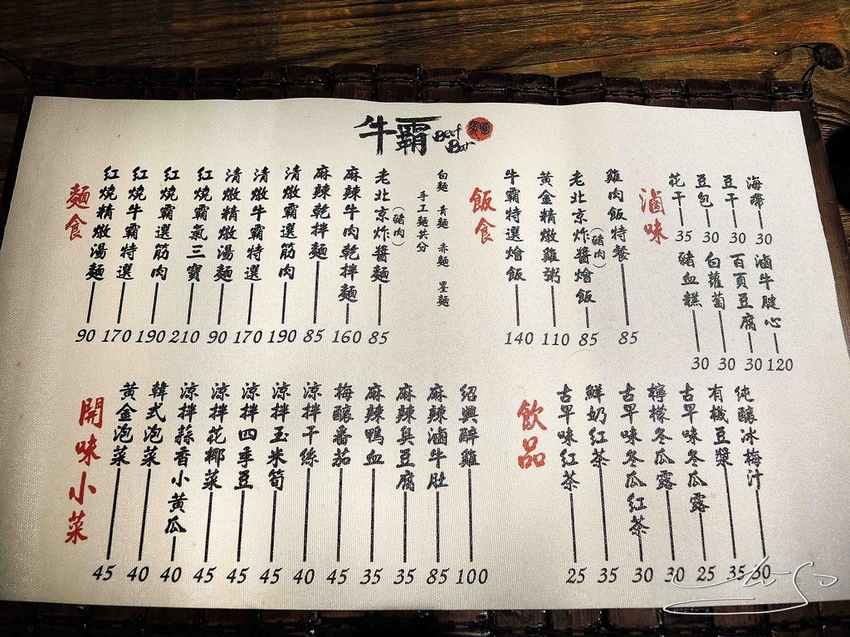 牛霸 Beef Bar
麵食
紅燒精燉湯麵 90
紅燒牛霸特選 170
紅燒霸選筋肉 190
紅燒霸氣三寶 210
清燉精燉湯麵 90
清燉牛霸特選 170
清燉霸選筋肉 190
麻辣乾拌麵 85
麻辣牛肉乾拌麵 160
老北京炸醬麵(豬肉) 85
手工麵共分
白麵 青麵 赤麵 墨麵
飯食
牛霸特選燴飯 140
黃金精燉雞粥 110
老北京炸醬燴飯(豬肉) 85
雞肉飯特餐 85
滷味
花干 35
豆包 30
豆干 30
海帶 30
豬血糕 30
白蘿蔔 30
百頁豆腐 30
滷牛腱心 120
開味小菜
黃金泡菜 45
韓式泡菜 40
涼拌蒜香小黃瓜 40
涼拌花椰菜 45
涼拌四季豆 45
涼拌玉米筍 45
涼拌干絲 40
梅釀番茄 45
麻辣鴨血 35
麻辣臭豆腐 35
麻辣滷牛肚 85
紹興醉雞 100
飲品
古早味紅茶 25
鮮奶紅茶 35
古早味冬瓜紅茶 30
檸檬冬瓜露 30
古早味冬瓜露 25
有機豆漿 35
純釀冰梅汁